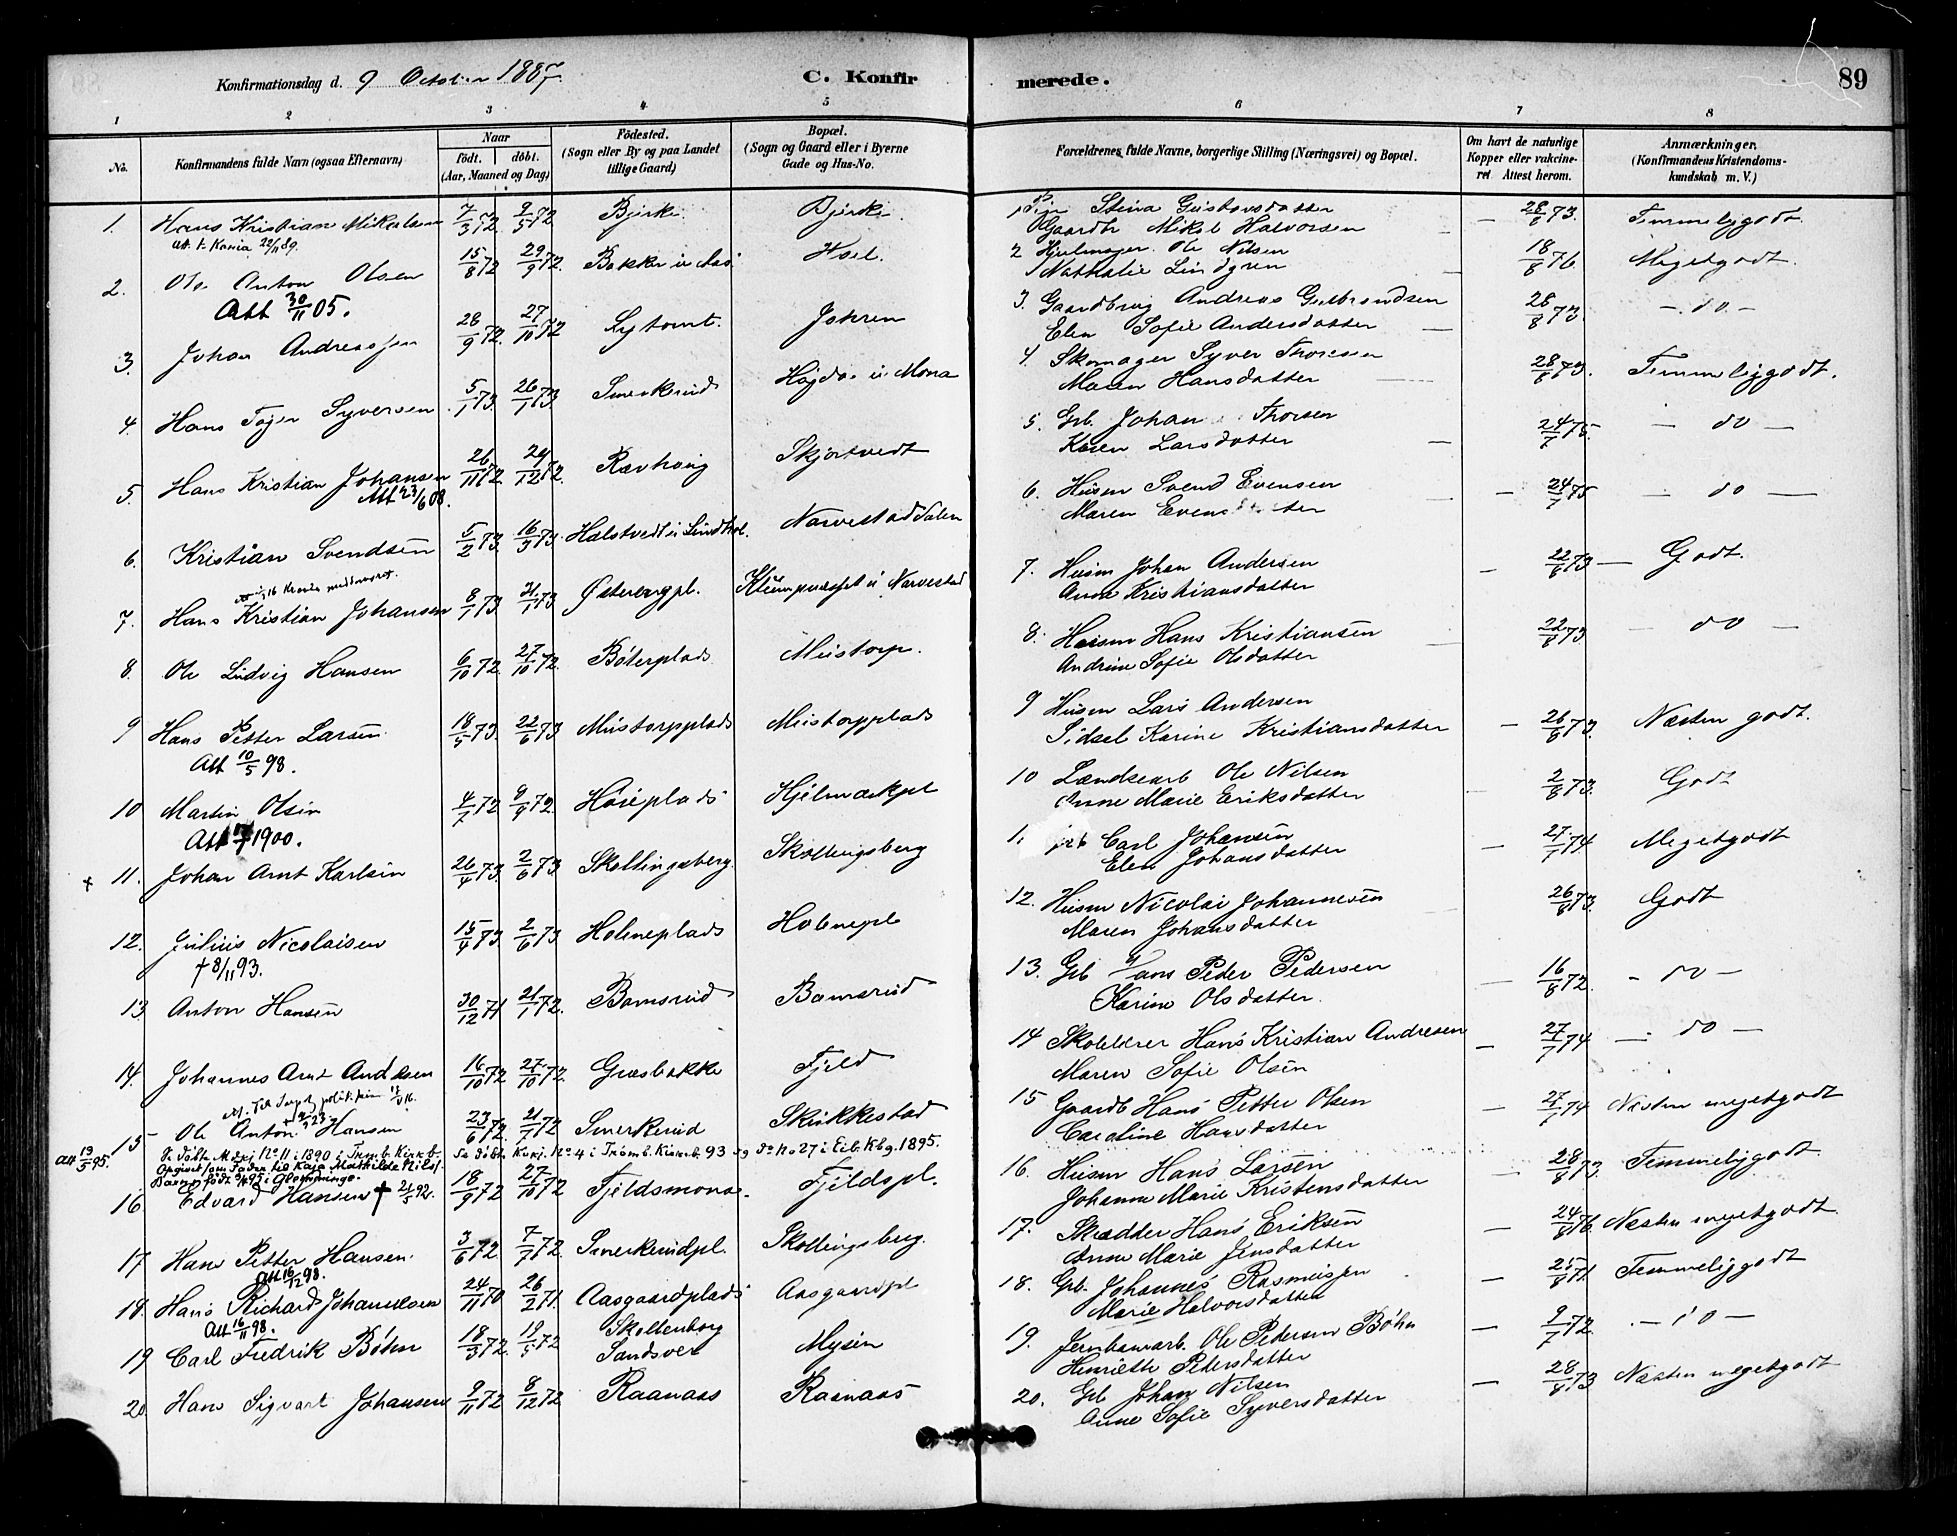 Konfirmationsdag d. 9 October 1887.
C. Konfirmerede.
89
1 2 3 4 5 6 7 8
No.
Konfirmandens fulde Navn (ogsaa Efternavn)
Naar
födt. döbt.
(Aar, Maaned og Dag)
Födested.
(Sogn eller By og paa Landet
tillige Gaard)
Bopæl.
(Sogn og Gaard eller i Byerne
Gade og Hus-No.
Forældrenes fulde Navne, borgerlige Stilling (Næringsvei) og Bopæl.
Om havt de naturlige
Kopper eller vakcine-
ret Attest herom.
Anmærkninger.
(Konfirmandens Kristendoms-
kundskab m. V.)
1. Hans Kristian Mikalsen 7/3 72 9/5 72 Bjerke Bjerke Stina Gustavsdatter
Gaardbr Mikel Halvorsen – 28/8 73. Temmeligodt.
Att. t. Krania 22/11 89.
2. Ole Anton Olsen 15/8 72 29/9 72. Hoel. 2 Hjulmager Ole Nilsen
Nathalie Lindgren 18/8 76 Megetgodt.
Att 30/11 05.
3. Johan Andreassen 28/9 72. 27/10 72 Lytomt. Johren 3. Gaardbrug Andreas Gulbrandsen
Elen Sofie Andersdatter 28/8 73 – do –
4. Hans Syversen 5/1 73. 26/1 73 Smerkerud Høgda u Mona 4. Skomager Syver Thoresen
Maren Hansdatter 28/8 73. Temmeligodt.
5. Hans Kristian Johansen 26/11 72 29/12 72. Ravhaug Skjortvedt 5. Grb. Johan Thorsen
Karen Larsdatter 24/7 75. – do –
Att 23/6 08.
6. Kristian Svendsen 5/2 73. 16/3 73. Halstvedt u Lindhol. Narvestaddalen 6. Husm Svend Evensen
Maren Evensdatter – 24/7 75 – do –
7. Hans Kristian Johansen 8/1 73. Østerengpl. 7. Husm Johan Andersen
Anne Kristiansdatter – 22/8 73 – Godt.
8. Ole Ludvig Hansen 6/10 72. 27/10 72. Böterplads Mustorp. 8. Husm Hans Kristiansen
Andrine Sofie Olsdatter 22/8 73 – do –
9 Hans Petter Larsen 18/5 73. 22/6 73 Mustorpplads Mustorpplads 9 Husm Lars Andersen
Sidsel Karine Kristiansdatter – 26/8 73. Næsten godt.
Att 10/5 98.
10 Martin Olsen 4/7 72 8/9 72. Høieplads Hjelmarkpl 10 Landsearb Ole Nilsen
Anne Marie Eriksdatter 2/8 73. Godt
Att 1900.
+ 11. Johan Arnt Karlsen 26/4 73. 2/6 73 Skollingsberg. Skollingsberg Carl Johansen
Elen Johansdatter – 27/7 74 Megetgodt
12. Julius Nicolaisen 15/4 73 2/6 73 Holeneplads Holenepl 12. Husm Nicolai Johannesen
Maren Johansdatter 26/8 73. Godt
† 8/11 93.
13. Anton Hansen 30/12 71 21/1 72. Bamsrud Bamsrud 13. Grb Hans Peder Pedersen
Karine Olsdatter. 16/8 72. – do –
14. Johannes Arnt Andresen 16/10 72 27/10 72. Græsbakke Fjeld 14 Skolelærer Hans Kristian Andresen
Maren Sofie Olsen – 27/7 74 – do –
15 Ole Anton Hansen 23/6 72. 21/7 72 Smerkerud Skukkestad 15 Gaardb Hans Petter Olsen
Caroline Hansdatter – 27/7 74 Næsten megetgodt
Att 19/5 95.
Se døbte Mdkj. No 11 i 1890 i Trøm b. Kirkb. Se døbte Kvkj. No 4 i Trømb. Kirkeb. 93 og do No 27 i Eib. Kbg. 1895.
Opgivet som Fader til Kaja Mathilde Nilsf.
16. Edvard Hansen † 21/5 92. 18/9 72 27/10 72 Fjeldsmona. Fjeldspl. 16. Husm Hans Larsen
Johanne Marie Kristensdatter – 28/8 73. Temmeligodt
17 Hans Petter Hansen. 3/6 72. 7/7 72. Smerkerudpl. Skollingsberg. 17. Skrædder Hans Eriksen
Anne Marie Jensdatter – 24/8 76 Næsten megetgodt
Att 16/12 98.
18. Hans Richard Johannesen 24/11 70 26/2 71. Aasgaardplads Aasgaardpl 18. Grb. Johannes Rasmussen
Marie Halvorsdatter – 25/8 71 Temmeliggodt
Att 16/11 98.
19 Carl Fredrik Bøhn 18/3 72. 19/5 72 Skollenborg
Sandsver Mysen 19. Jernbanearb. Ole Pedersen Bøhn
Henriette Pedersdatter – 9/7 72. – do –
20 Hans Sigvart Johansen 9/11 72 8/12 72 Raanaas Raanaas 20. Grb Johan Nilsen
Anne Sofie Syversdatter – 28/8 73 Næsten megetgodt